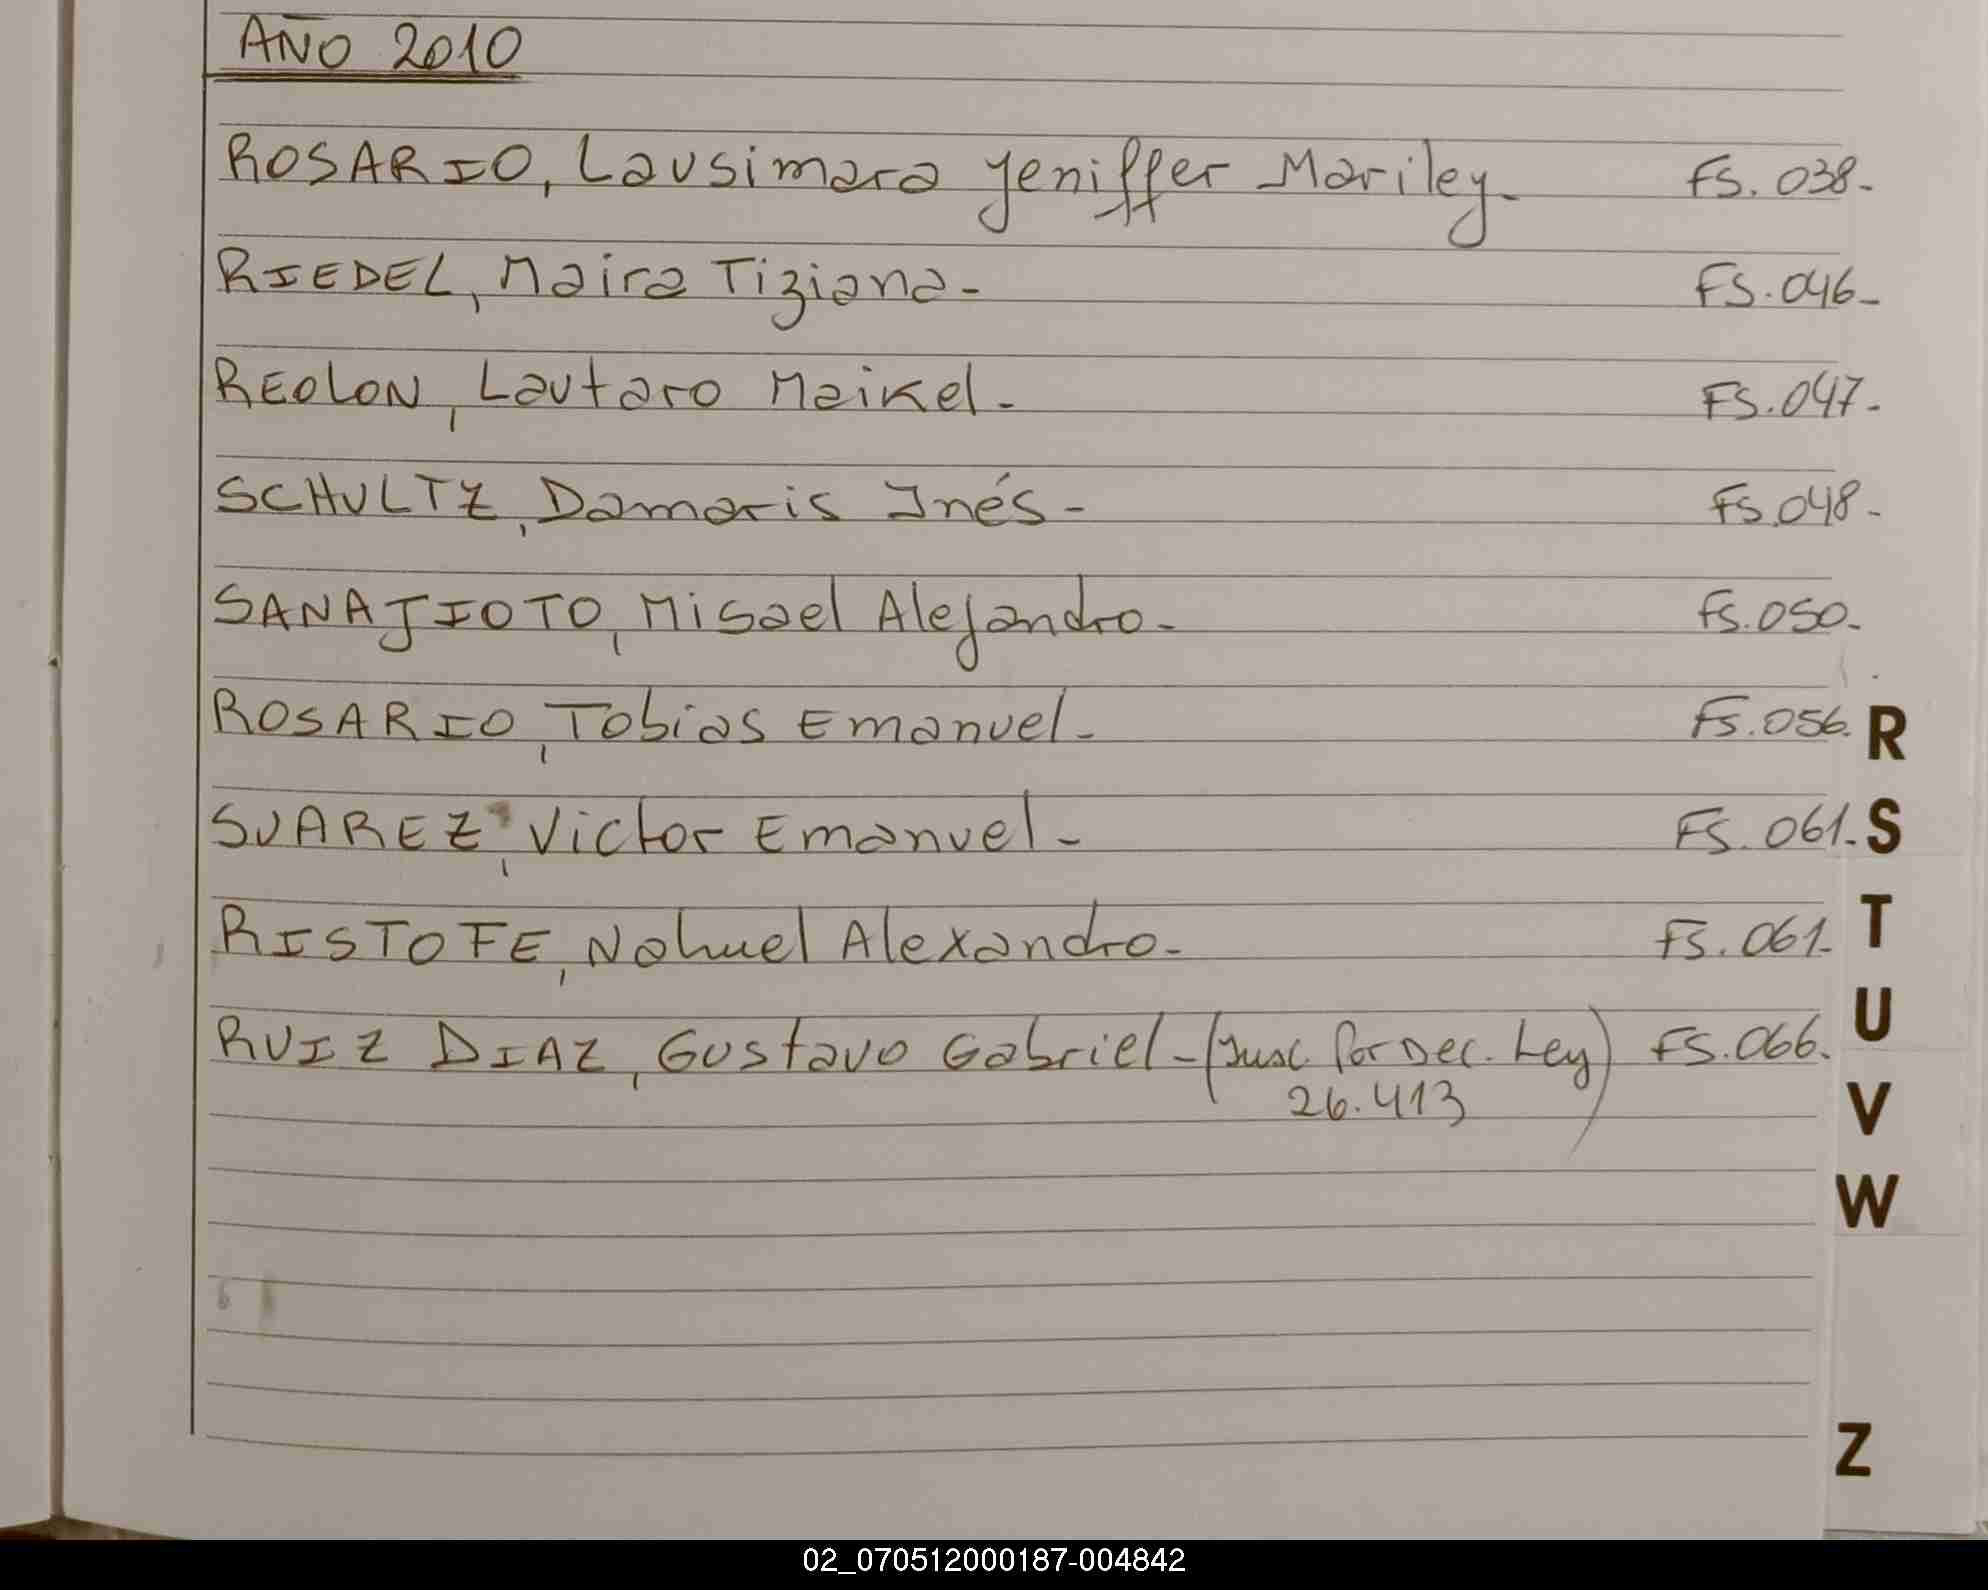 AÑO 2010
ROSARIO, Lausimara Yeniffer Mariley- FS. 038-
RIEDEL, Maira Tiziana- FS. 046-
REOLON, Lautaro Maikel- FS. 047-
SCHULTZ, Damaris Inés- FS. 048-
SANAJIOTO, Misael Alejandro- FS. 050-
ROSARIO, Tobias Emanuel- FS. 056. R
SUAREZ, Victor Emanuel- FS. 061- S
RISTOFE, Nahuel Alexandro- FS. 061- T
RUIZ DIAZ, Gustavo Gabriel-(Insc. Por Dec. Ley) FS. 066. U
26.413
V
W
Z
02_070512000187-004842